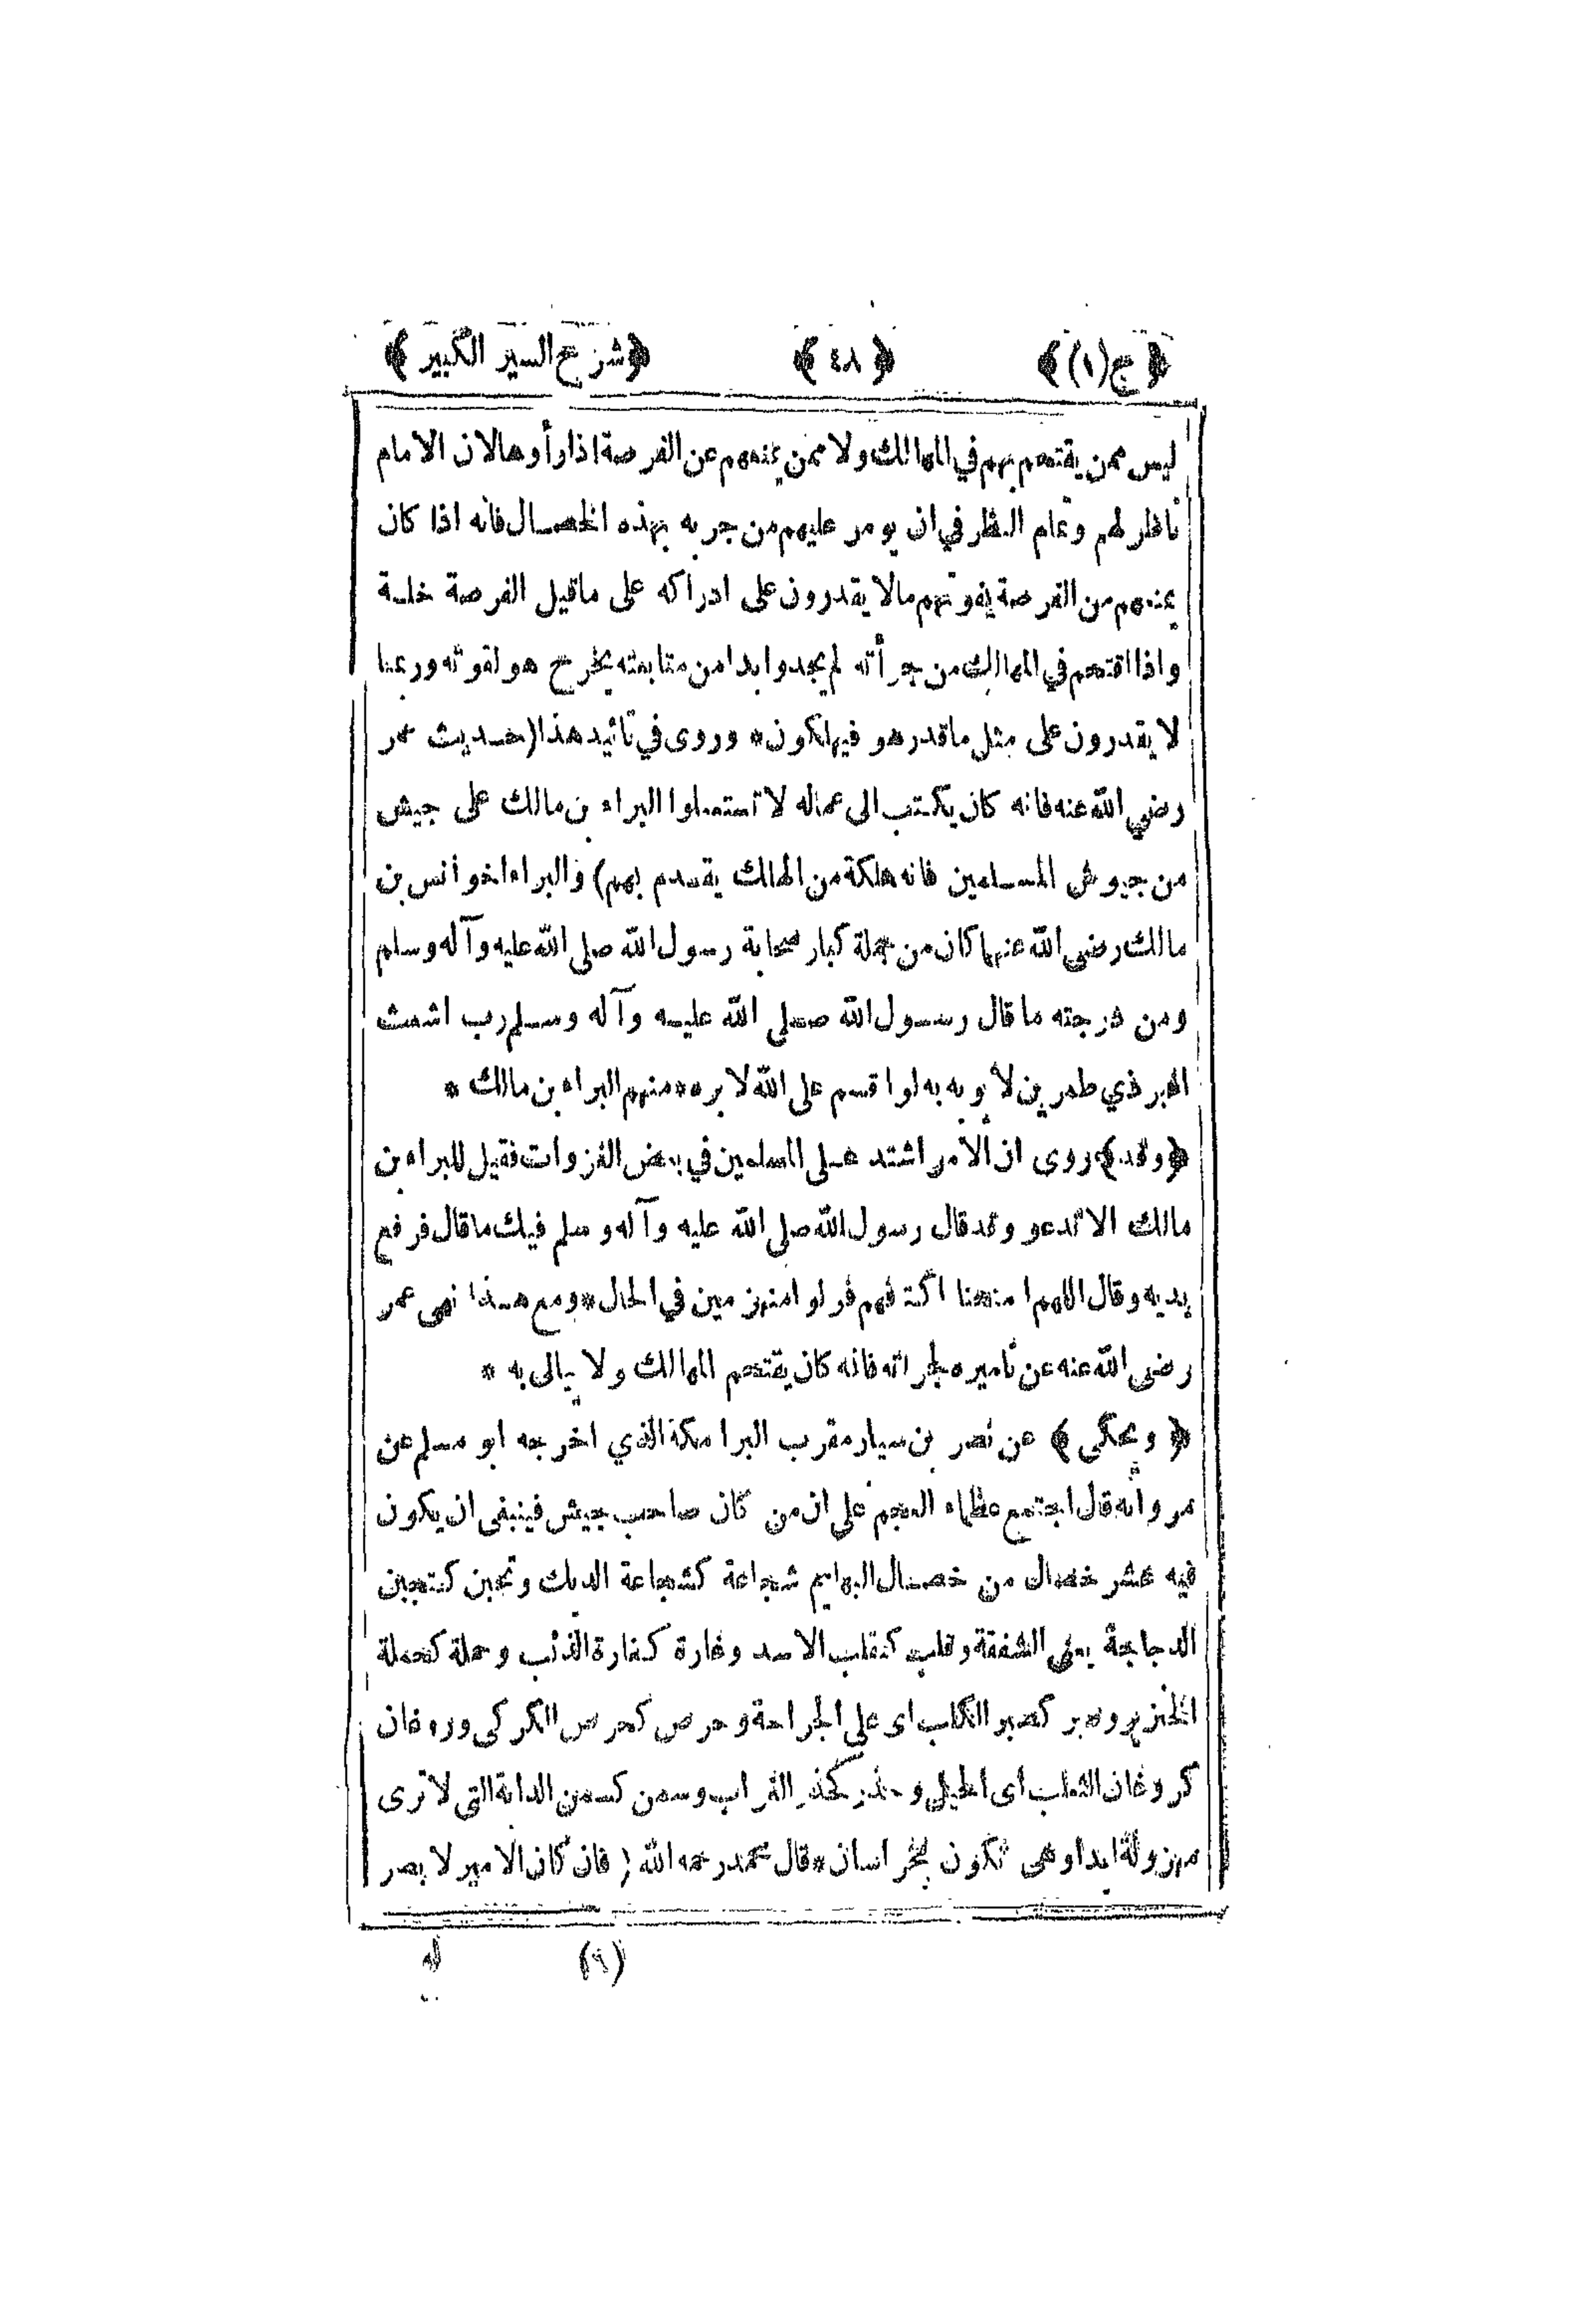 ﴿ ج(١) ﴾ ﴿ ٤٨ ﴾ ﴿ شرح السير الكبير ﴾
ليس ممن يقتحم بهم في المهالك ولا ممن يمنعهم عن الفرصة اذا رأوها لان الامام
ناظر لهم وتمام النظر في ان يومر عليهم من جربه بهذه الخصال فانه اذا كان
يمنعهم من الفرصة يفوتهم ما لا يقدرون على ادراكه على ما قيل الفرصة خلسة
واذا اقتحم في المهالك من جرأته لم يجدوا بدا من متابعته يخرج هو لقوته وربما
لا يقدرون على مثل ما قدر هو فيهلكون * وروى في تائيد هذا (حديث عمر
رضي الله عنه فانه كان يكتب الى عماله لا تستعملوا البراء بن مالك على جيش
من جيوش المسلمين فانه هلكة من الهالك يقدم بهم) والبراء اخو أنس بن
مالك رضي الله عنهما كان من جملة كبار صحابة رسول الله صلى الله عليه وآله وسلم
ومن درجته ما قال رسول الله صلى الله عليه وآله وسلم رب اشعث
اغبر ذي طمرين لا يوبه به لو اقسم على الله لابره * منهم البراء بن مالك *
﴿ وقد ﴾ روى ان الأمر اشتد على المسلمين في بعض الغزوات فقيل للبراء بن
مالك الا تدعو وقد قال رسول الله صلى الله عليه وآله وسلم فيك ما قال فرفع
يديه وقال اللهم امنحنا اكتافهم فولوا منهزمين في الحال * ومع هذا نهى عمر
رضى الله عنه عن تاميره لجرأته فانه كان يقتحم المهالك ولا يبالى به *
﴿ ويحكى ﴾ عن نصر بن سيار مقرب البرامكة الذي اخرجه ابو مسلم عن
مرو انه قال اجتمع عظماء العجم على ان من كان صاحب جيش فينبغى ان يكون
فيه عشر خصال من خصال البهايم شجاعة كشجاعة الديك وتجبن كتجبن
الدجاجة يعنى الشفقة وقلب كقلب الاسد وغارة كغارة الذئب وحملة كحملة
الخنزير وصبر كصبر الكلب اى على الجراحة وحرص كحرص الكركى وروغان
كروغان الثعلب اى الحيل وحذر كحذر الغراب وسمن كسمن الدابة التى لا ترى
مهزولة ابدا وهى تكون بخراسان * قال محمد رحمه الله ( فان كان الامير لا بصر
(٩) له